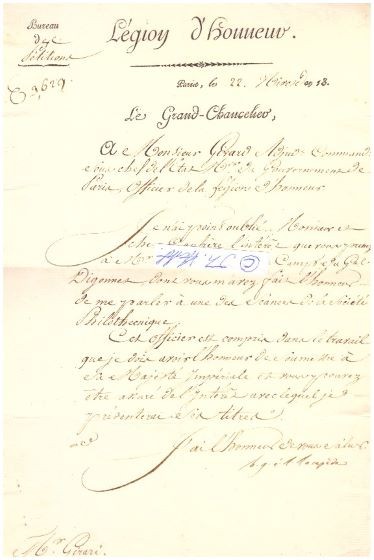 Bureau
des
Pétitions
Légion d'honneur.
Paris, le 22. Nivôse an 13.
Le Grand-Chancelier,
A Monsieur Gérard Adjud. Command.
sous chef de l'Etat M.or du Gouvernement de
Paris, Officier de la Légion d'honneur
Je n'ai point oublié, Monsieur et
cher l'intérêt que vous prenez
à Mr. Camp du Gal.
Digonnet, dont vous m'avez fait l'honneur
de me parler à une des Séances de la Société
Philotechnique
Cet officier est compris dans le travail
que je dois avoir l'honneur de soumettre à
Sa Majesté Impériale et vous pouvez
être assuré de l'intérêt avec lequel je
présenterai ses titres
J'ai l'honneur de vous saluer
Mr. Gérard.